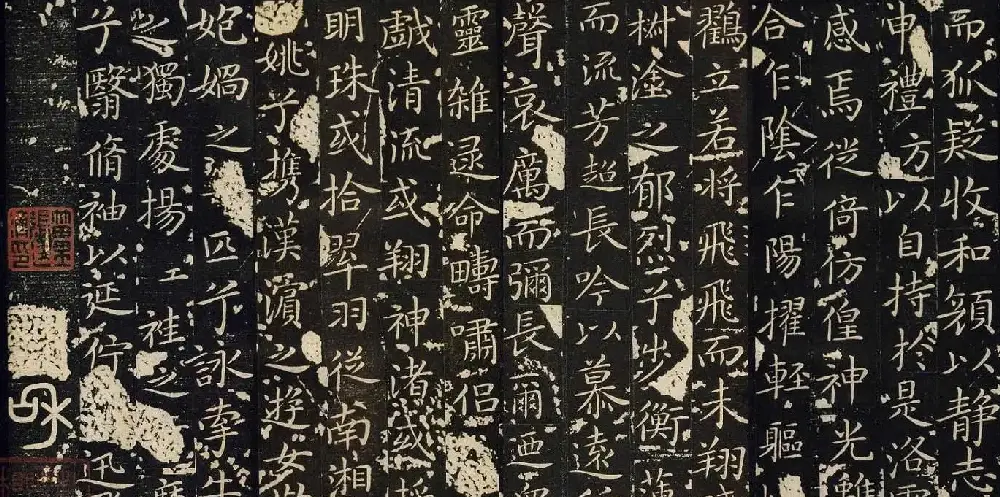 而狐疑收和顔以静志
申禮方以自持扵是洛
感焉徙倚仿偟神光離
合乍陰乍陽擢輕軀
鸖立若將飛飛而未翔
樹塗之郁烈乎步衡薄
而流芳超長吟以慕遠
聲哀厲而彌長爾迺衆
靈雜遝命疇嘯侣
戲清流或翔神渚或採
明珠或拾翠羽從南湘
姚兮携漢濱之遊女
媧之匹兮詠牽牛
之獨處揚袿之
兮翳脩袖以延佇迅